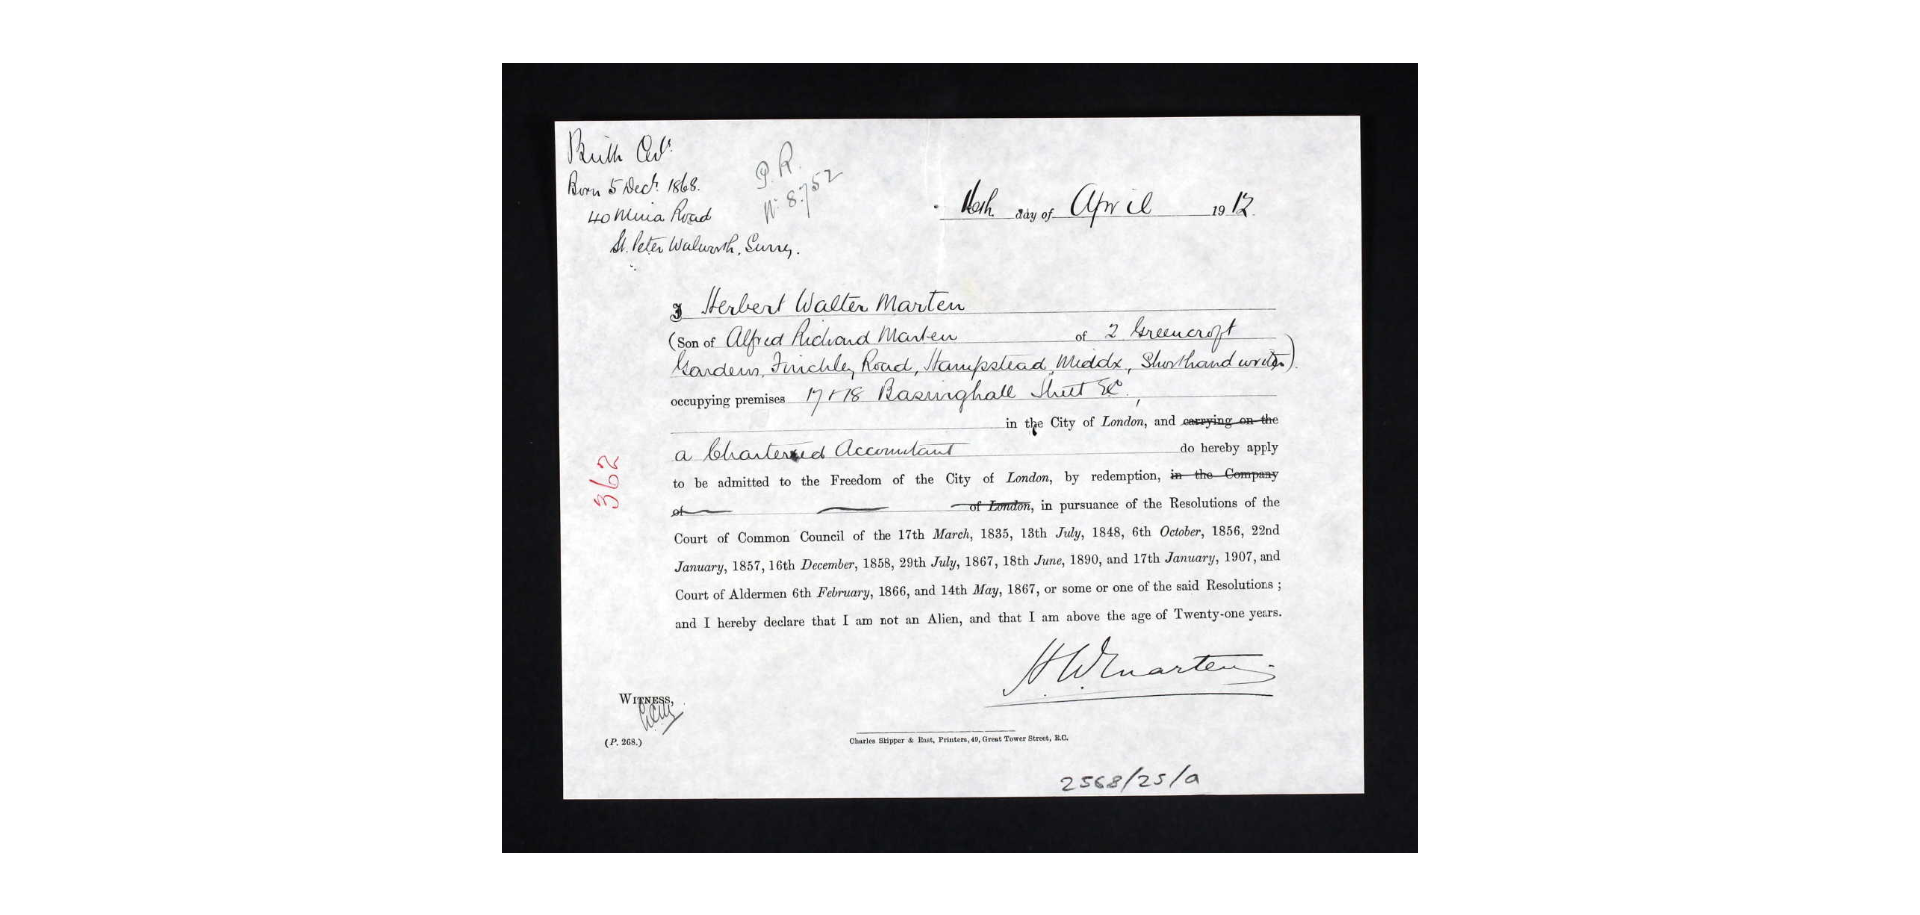 Birth Cert.
Born 5 Decr. 1868.
40 Minia Road
St. Peter Walworth, Surrey.
P.R.
No. 8752
day of April 1912
I Herbert Walter Marten
(Son of Alfred Richard Marten of 2 Greencroft
Gardens, Finchley Road, Hampstead, Middx, Shorthand writer).
occupying premises 17 & 18 Basinghall Street EC,
in the City of London, and carrying on the
a Chartered Accountant do hereby apply
to be admitted to the Freedom of the City of London, by redemption, in the Company
of of London, in pursuance of the Resolutions of the
Court of Common Council of the 17th March, 1835, 13th July, 1848, 6th October, 1856, 22nd
January, 1857, 16th December, 1858, 29th July, 1867, 18th June, 1890, and 17th January, 1907, and
Court of Aldermen 6th February, 1866, and 14th May, 1867, or some or one of the said Resolutions ;
and I hereby declare that I am not an Alien, and that I am above the age of Twenty-one years.
362
H W Marten
WITNESS,
(P. 268.)
Charles Skipper & East, Printers, 49, Great Tower Street, E.C.
2568/25/a